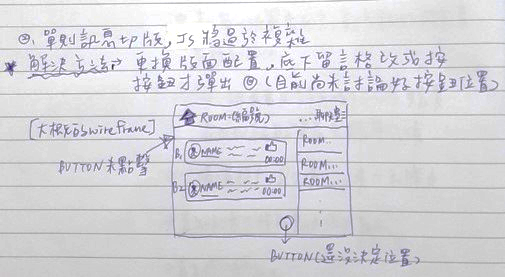 ②. 單則訊息tp版, JS將過於複雜
* 解決方法⇒ 更換版面配置, 底下留言格改成按
按鈕才彈出 (目前尚未討論好按鈕位置)
[大概的wireframe]
BUTTON未點擊
ROOM-(編號)
B1 NAME 00:00
B2 NAME 00:00
ROOM...
ROOM...
ROOM...
BUTTON(還沒決定位置)